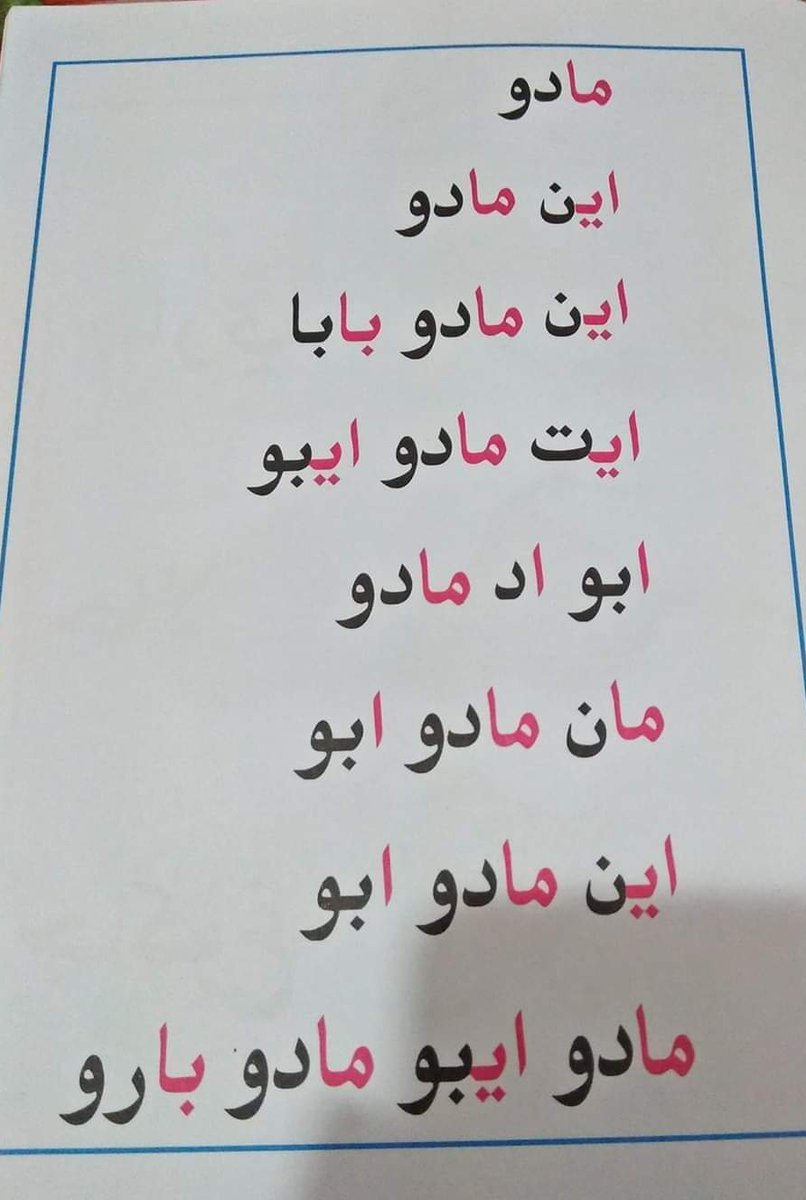 مادو
اين مادو
اين مادو بابا
ايت مادو ايبو
ابو اد مادو
مان مادو ابو
اين مادو ابو
مادو ايبو مادو بارو